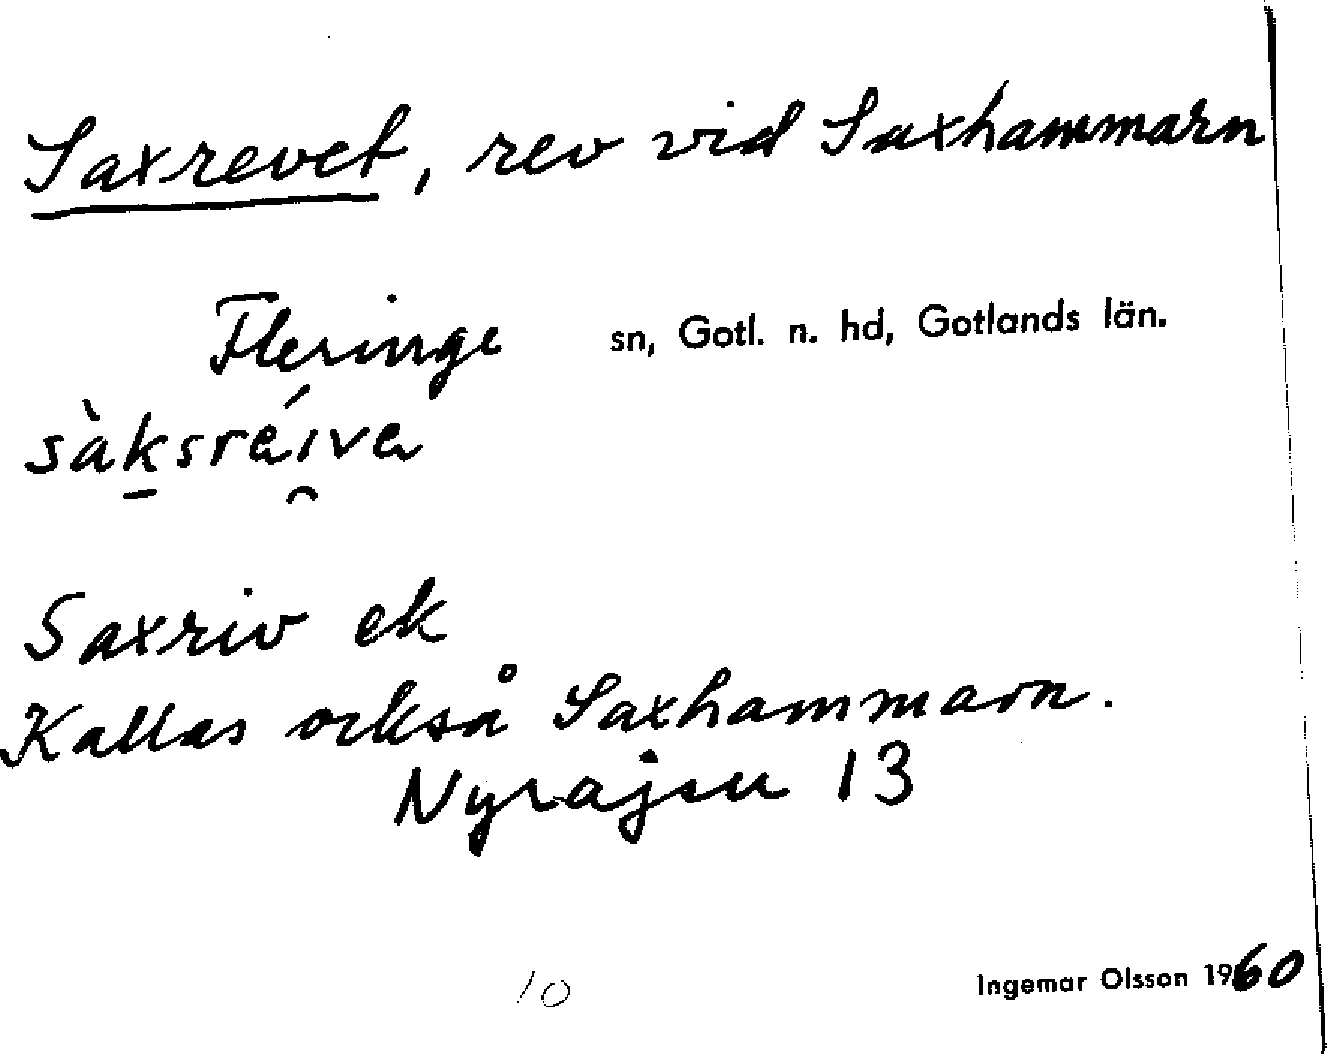 Saxrevet, rev vid Saxhammarn
Fleringe sn, Gotl. n. hd, Gotlands län.
sàksréiva
Saxriv ek
Kallas också Saxhammarn.
Nyrajsu 13
10 Ingemar Olsson 1960